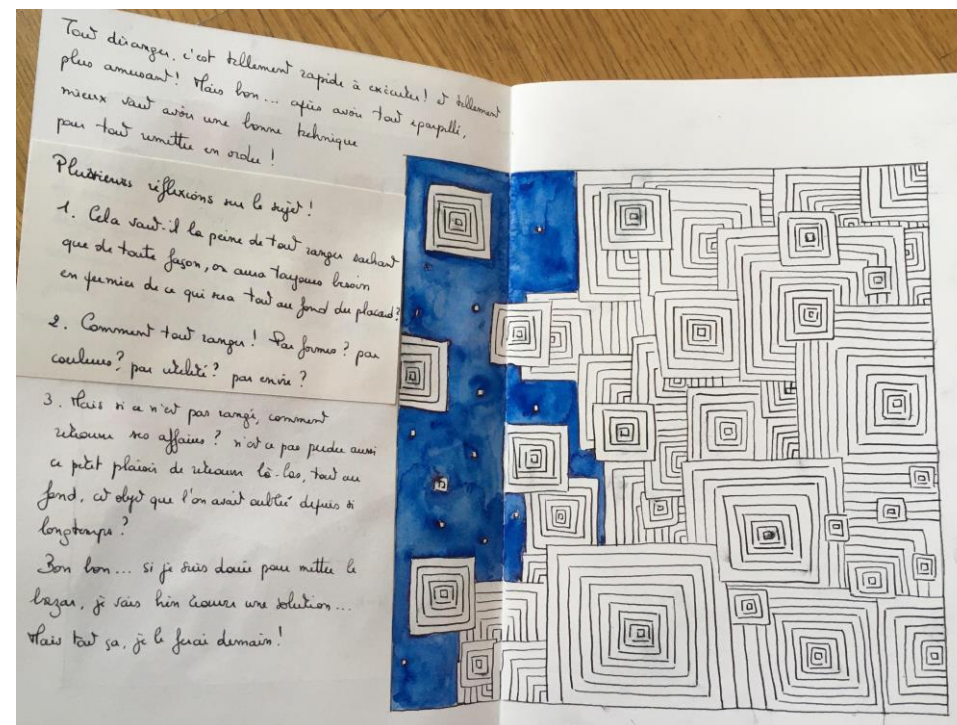 Tout déranger, c'est tellement rapide à exécuter! et tellement
plus amusant! Mais bon... après avoir tout éparpillé,
mieux vaut avoir une bonne technique
pour tout remettre en ordre!
Plusieurs réflexions sur le sujet!
1. Cela vaut-il la peine de tout ranger sachant
que de toute façon, on aura toujours besoin
en premier de ce qui sera tout au fond du placard?
2. Comment tout ranger! Par formes? par
couleurs? par utilité? par envie?
3. Mais si ce n'est pas rangé, comment
retrouver ses affaires? n'est ce pas perdre aussi
ce petit plaisir de retrouver là-bas, tout au
fond, cet objet que l'on avait oublié depuis si
longtemps?
Bon bon... si je suis douée pour mettre le
bazar, je vais bien trouver une solution...
Mais tout ça, je le ferai demain!